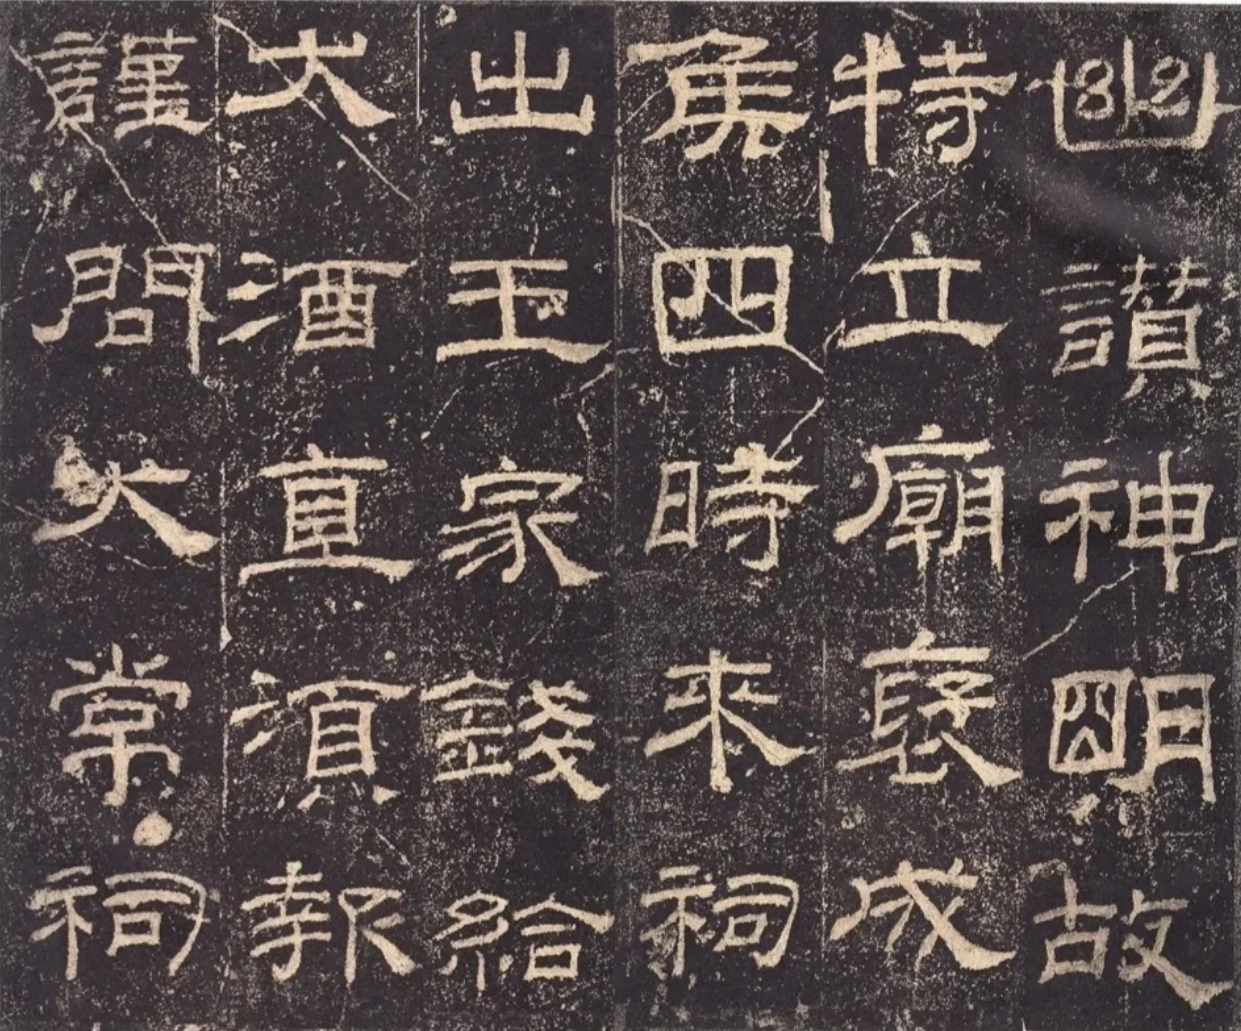 幽讃神明故
特立廟褒成
侯四時來祠
出王家錢給
犬酒直須報
謹問大常祠